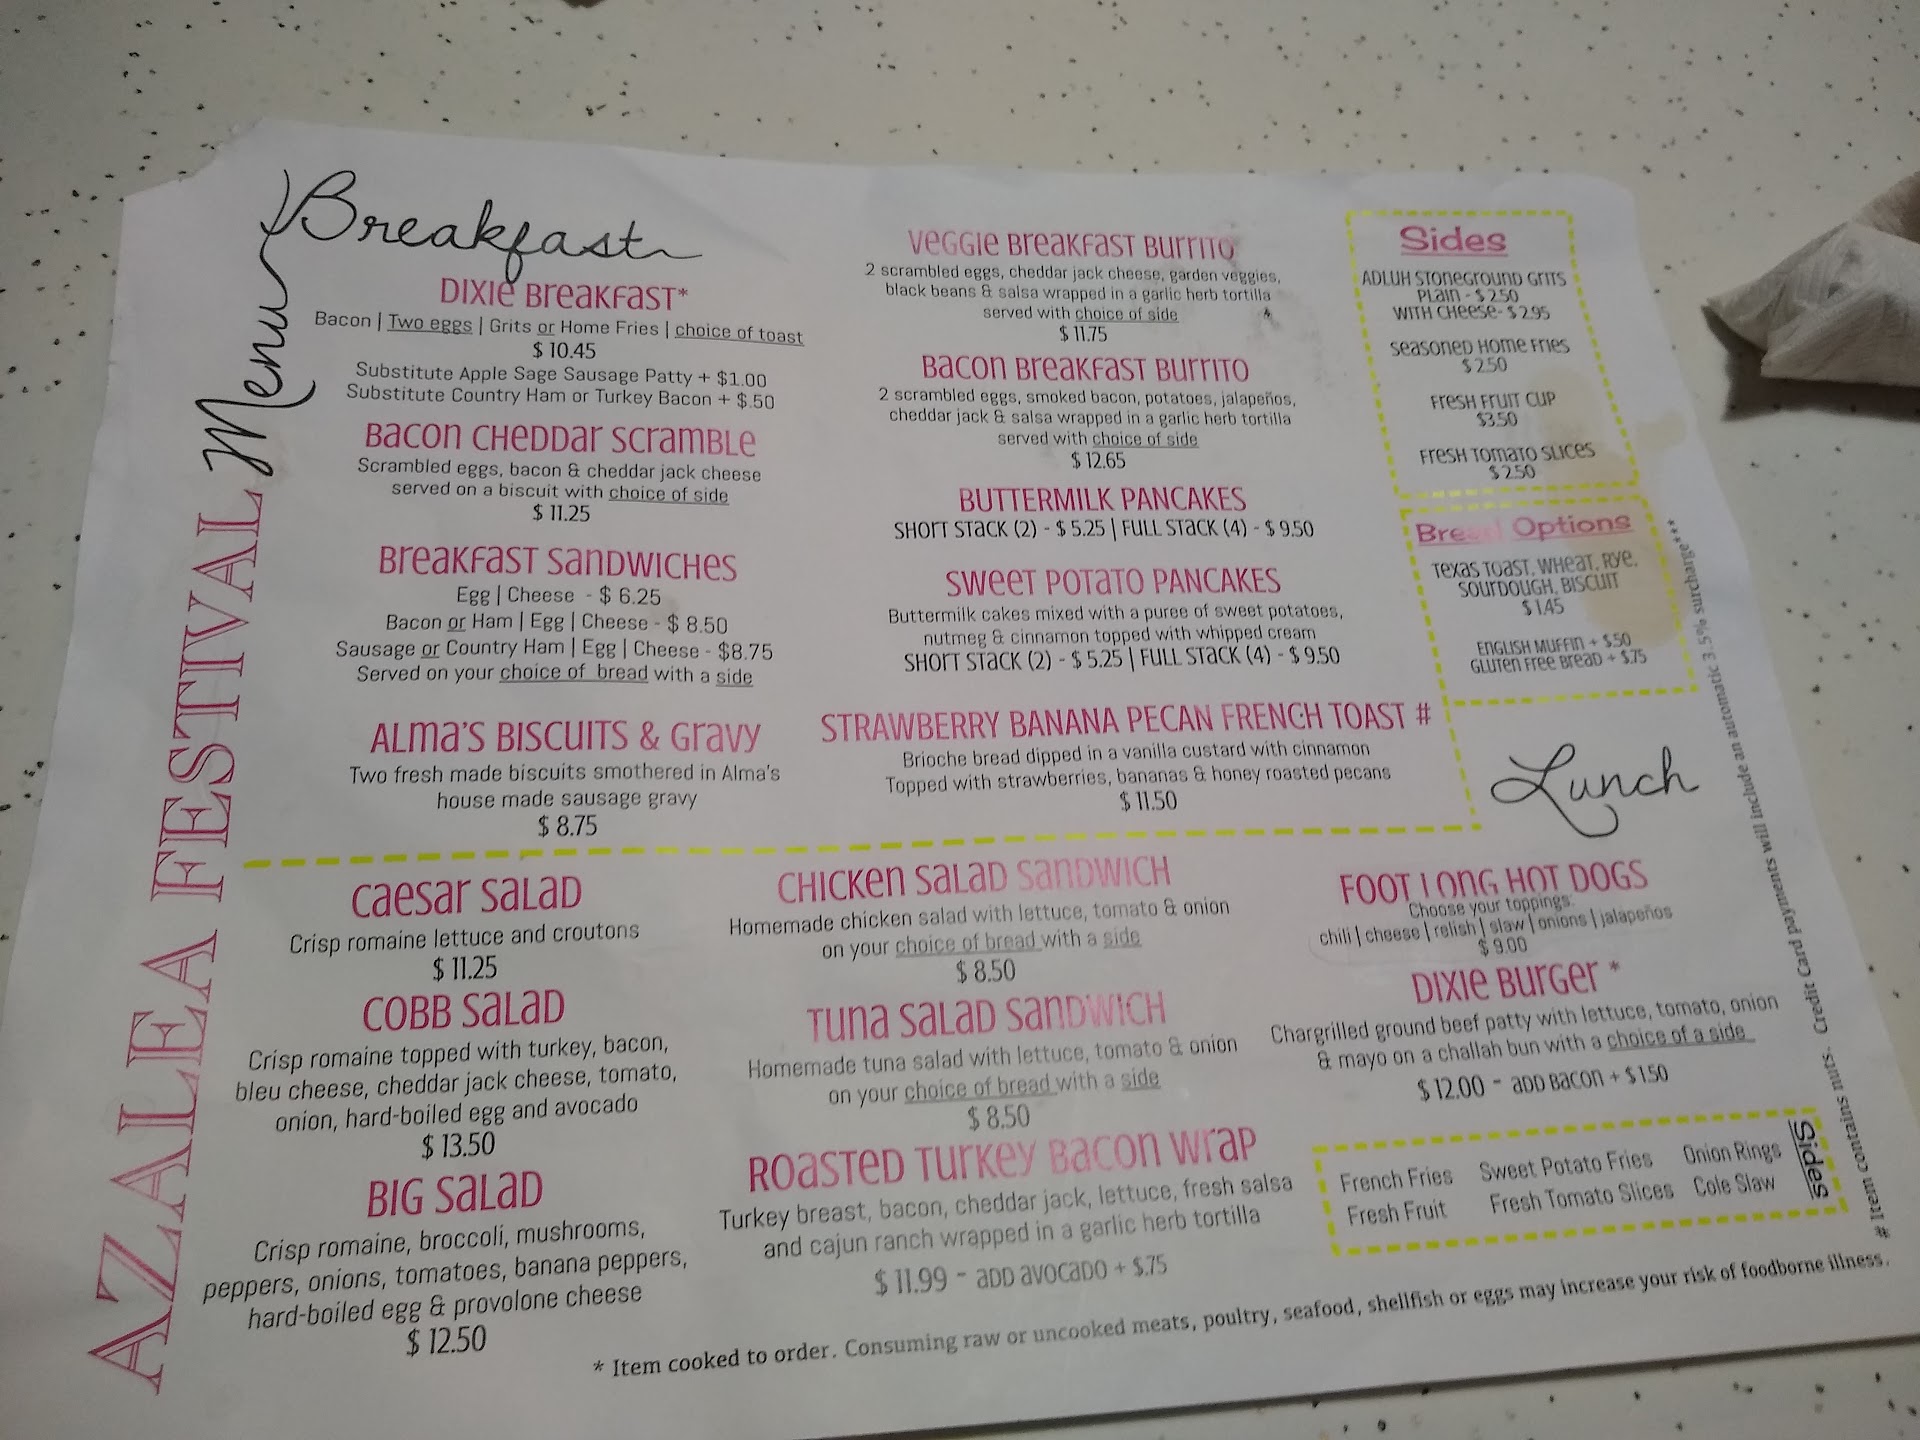 AZALEA FESTIVAL Menu
Breakfast
DIXIE BREAKFAST*
Bacon | Two eggs | Grits or Home Fries | choice of toast
$ 10.45
Substitute Apple Sage Sausage Patty + $1.00
Substitute Country Ham or Turkey Bacon + $.50
BACON CHEDDAR SCRAMBLE
Scrambled eggs, bacon & cheddar jack cheese
served on a biscuit with choice of side
$ 11.25
BREAKFAST SANDWICHES
Egg | Cheese - $ 6.25
Bacon or Ham | Egg | Cheese - $ 8.50
Sausage or Country Ham | Egg | Cheese - $8.75
Served on your choice of bread with a side
ALMA'S BISCUITS & GRAVY
Two fresh made biscuits smothered in Alma's
house made sausage gravy
$ 8.75
VEGGIE BREAKFAST BURRITO
2 scrambled eggs, cheddar jack cheese, garden veggies,
black beans & salsa wrapped in a garlic herb tortilla
served with choice of side
$ 11.75
BACON BREAKFAST BURRITO
2 scrambled eggs, smoked bacon, potatoes, jalapeños,
cheddar jack & salsa wrapped in a garlic herb tortilla
served with choice of side
$ 12.65
BUTTERMILK PANCAKES
SHORT STACK (2) - $ 5.25 | FULL STACK (4) - $ 9.50
SWEET POTATO PANCAKES
Buttermilk cakes mixed with a puree of sweet potatoes,
nutmeg & cinnamon topped with whipped cream
SHORT STACK (2) - $ 5.25 | FULL STACK (4) - $ 9.50
STRAWBERRY BANANA PECAN FRENCH TOAST #
Brioche bread dipped in a vanilla custard with cinnamon
Topped with strawberries, bananas & honey roasted pecans
$ 11.50
Sides
ADLUH STONEGROUND GRITS
PLAIN - $ 2.50
WITH CHEESE- $ 2.95
SEASONED HOME FRIES
$ 2.50
FRESH FRUIT CUP
$3.50
FRESH TOMATO SLICES
$ 2.50
Bread Options
TEXAS TOAST, WHEAT, RYE,
SOURDOUGH, BISCUIT
$ 1.45
ENGLISH MUFFIN + $.50
GLUTEN FREE BREAD + $.75
Lunch
CAESAR SALAD
Crisp romaine lettuce and croutons
$ 11.25
COBB SALAD
Crisp romaine topped with turkey, bacon,
bleu cheese, cheddar jack cheese, tomato,
onion, hard-boiled egg and avocado
$ 13.50
BIG SALAD
Crisp romaine, broccoli, mushrooms,
peppers, onions, tomatoes, banana peppers,
hard-boiled egg & provolone cheese
$ 12.50
CHICKEN SALAD SANDWICH
Homemade chicken salad with lettuce, tomato & onion
on your choice of bread with a side
$ 8.50
TUNA SALAD SANDWICH
Homemade tuna salad with lettuce, tomato & onion
on your choice of bread with a side
$ 8.50
ROASTED TURKEY BACON WRAP
Turkey breast, bacon, cheddar jack, lettuce, fresh salsa
and cajun ranch wrapped in a garlic herb tortilla
$ 11.99 - ADD AVOCADO + $.75
FOOT LONG HOT DOGS
Choose your toppings:
chili | cheese | relish | slaw | onions | jalapeños
$ 9.00
DIXIE BURGER *
Chargrilled ground beef patty with lettuce, tomato, onion
& mayo on a challah bun with a choice of a side
$ 12.00 - ADD BACON + $ 1.50
Sides
French Fries Sweet Potato Fries Onion Rings
Fresh Fruit Fresh Tomato Slices Cole Slaw
* Item cooked to order. Consuming raw or uncooked meats, poultry, seafood, shellfish or eggs may increase your risk of foodborne illness.
# Item contains nuts. Credit Card payments will include an automatic 3.5% surcharge****